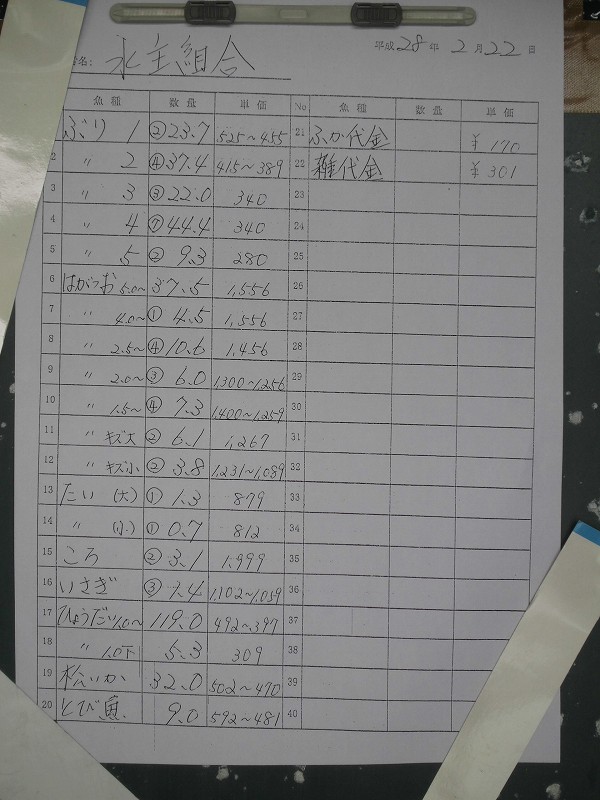 平成28年2月22日
名: 水主組合
魚種 数量 単価 No 魚種 数量 単価
ぶり 1 ②23.7 525~455 21 ふか代金 ¥170
2 〃 2 ④37.4 415~389 22 雑代金 ¥301
3 〃 3 ③22.0 340 23
4 〃 4 ⑦44.4 340 24
5 〃 5 ② 9.3 280 25
6 はがつお 5.0~ 37.5 1,556 26
7 〃 4.0~ ① 4.5 1,556 27
8 〃 2.5~ ④10.6 1,456 28
9 〃 2.0~ ③ 6.0 1,300~1,256 29
10 〃 1.5~ ④ 7.3 1,400~1,259 30
11 〃 キズ大 ② 6.1 1,267 31
12 〃 キズ小 ② 3.8 1,231~1,089 32
13 たい (大) ① 1.3 879 33
14 〃 (小) ① 0.7 812 34
15 ころ ② 3.1 1,999 35
16 いさぎ ③ 7.4 1,102~1,059 36
17 ひょうだい1.0~ 119.0 492~397 37
18 〃 1.0下 5.3 309 38
19 松いか 32.0 502~470 39
20 とび魚 9.0 592~481 40